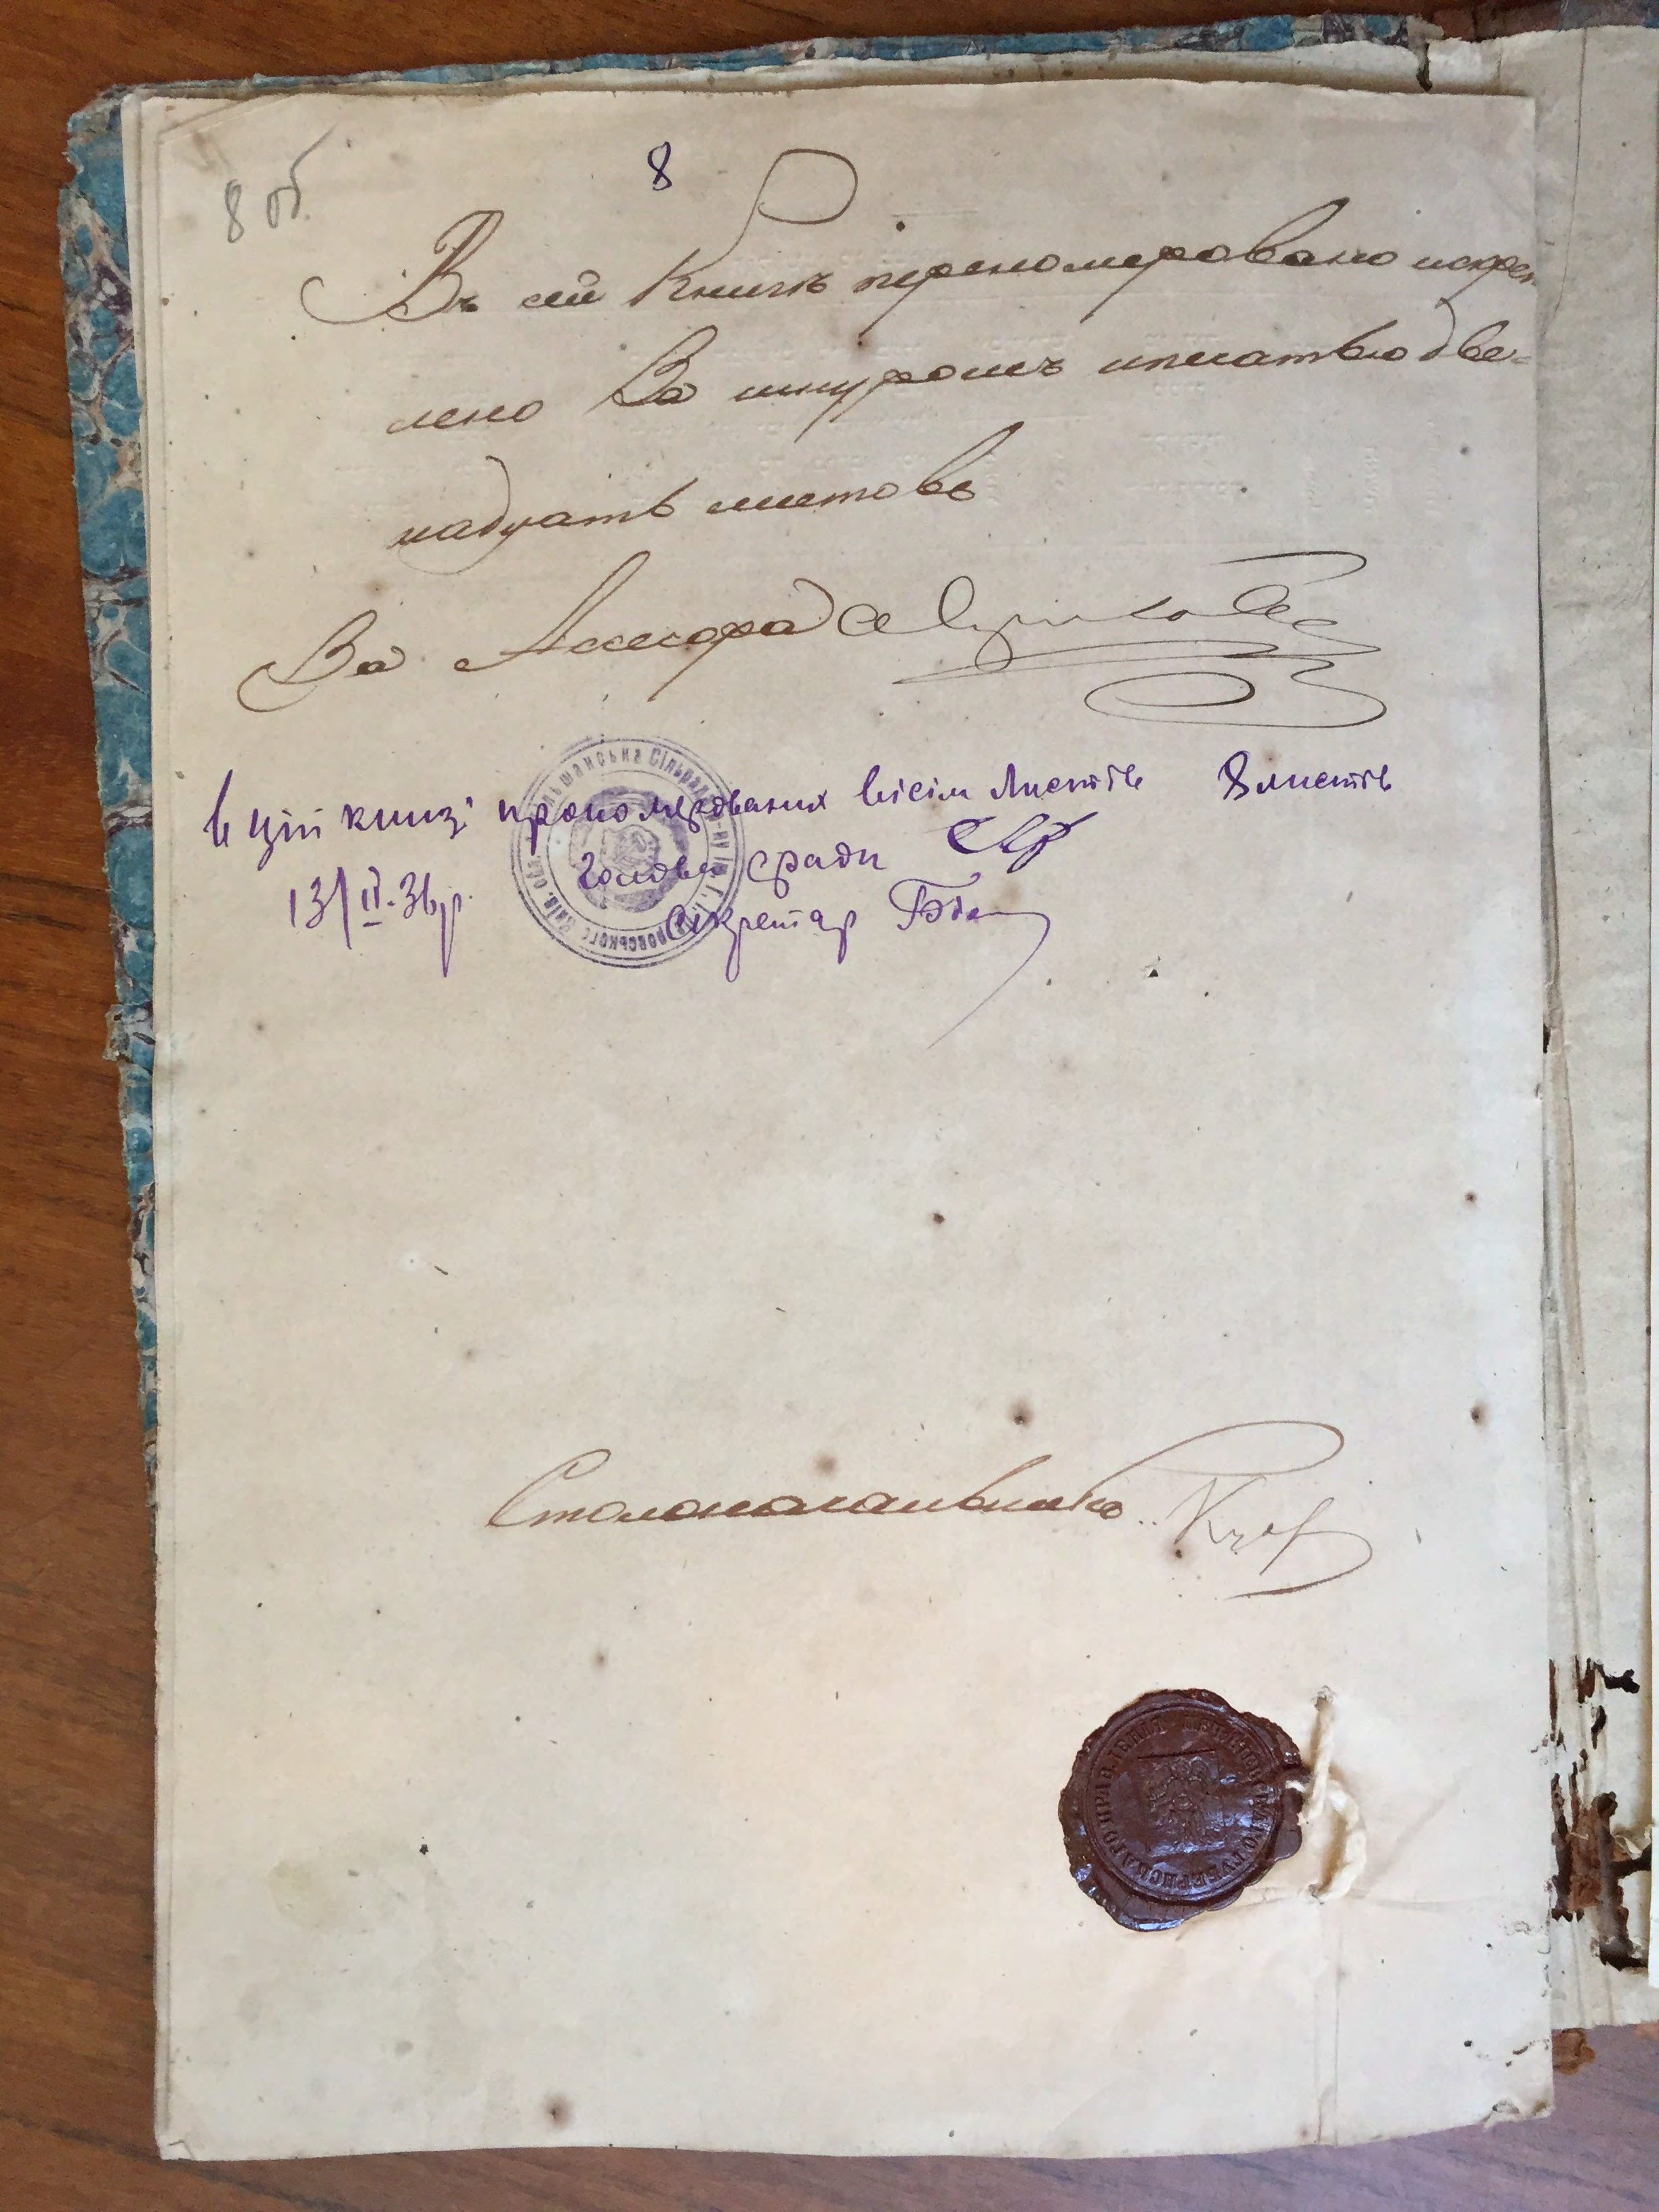 8 об
8
Въ сей Книгѣ переномеровано искреп
лено За шнуромъ ипечатью две-
надцать листовъ
За Ассесора
в цій книзі прономерованих вісім листів 8 листів
Голова с/ради
13/II-36 р.
Секретар
Столоначальникъ